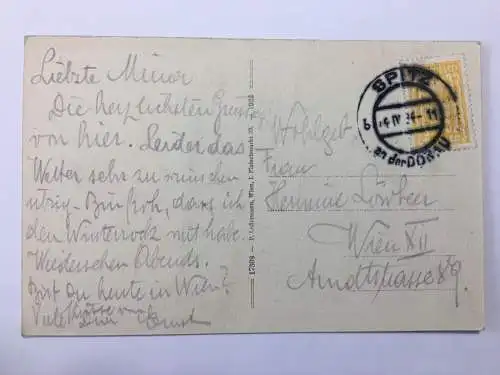 Liebste Minor
Die herzlichsten Grüsse
von hier. Leider das
Wetter sehr zu wünschen
übrig. Bin froh, dass ich
den Winterrock mit habe.
Wiedersehen Abends.
Bist du heute in Wien?
Viele Küsse von
Deiner Ernst
17308 P. Ledermann, Wien, I. Fleischmarkt
SPITZ
an der DONAU
Wohlgeb.
Frau
Hermine
Wien XII
Arndtstrasse 89